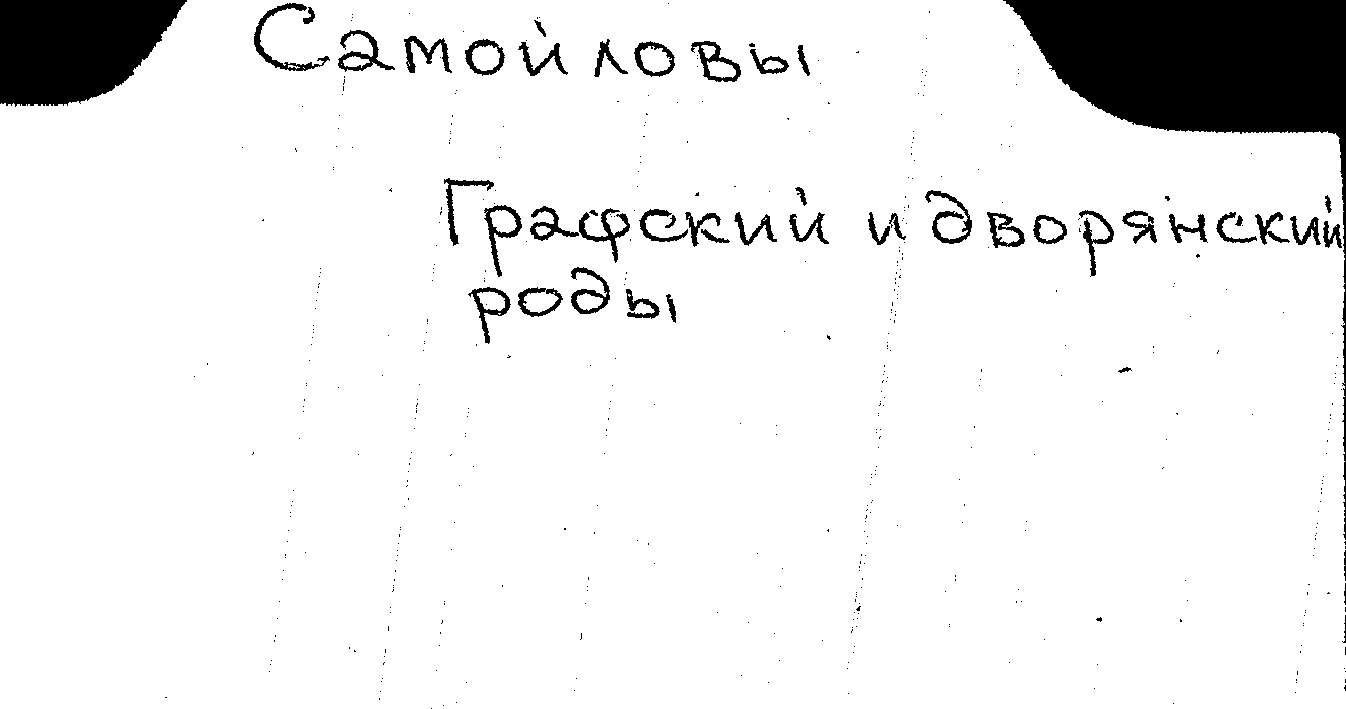 Самойловы
Графский и дворянский
роды